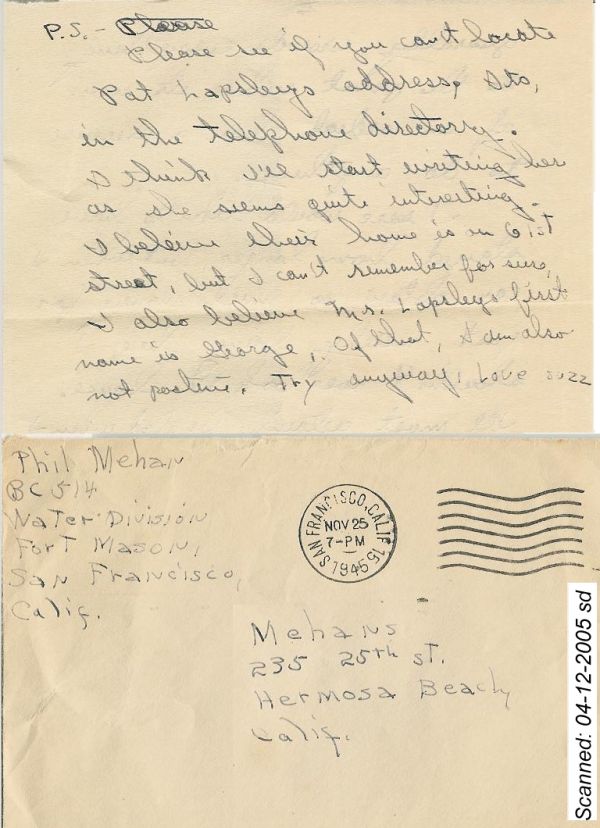 P.S. - Please
Please see if you can't locate
Pat Lapsleys address, Sto,
in the telephone directorry.
I think I'll start writing her
as she seems quite interesting.
I beleive their home is on 61st
street, but I can't remember for sure,
I also believe Mr. Lapsleys first
name is George, Of that, I am also
not postive. Try anyway. Love
Phil Mehan
BC 514
Water Division
Fort Mason,
San Francisco,
Calif.
SAN FRANCISCO, CALIF. 15
NOV 25
7-PM
1945
Mehans
235 25th st.
Hermosa Beach
Calif.
Scanned: 04-12-2005 sd